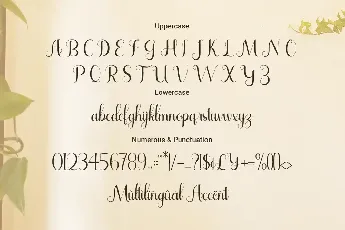 Uppercase
ABCDEFGHIJKLMNO
PQRSTUVWXYZ
Lowercase
abcdefghijklmnopqrstuvwxyz
Numerous & Punctuation
0123456789..:"*|/-_?!$£¥+-%()<>
Múltilingûal Accënt